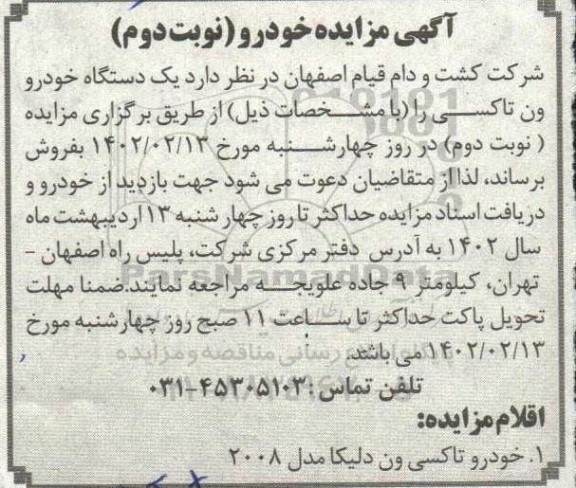 آگهی مزایده خودرو (نوبت دوم)
شرکت کشت و دام قیام اصفهان در نظر دارد یک دستگاه خودرو
ون تاکسی را (با مشخصات ذیل) از طریق برگزاری مزایده
( نوبت دوم) در روز چهارشنبه مورخ ۱۴۰۲/۰۲/۱۳ بفروش
برساند، لذا از متقاضیان دعوت می شود جهت بازدید از خودرو و
دریافت اسناد مزایده حداکثر تا روز چهار شنبه ۱۳ اردیبهشت ماه
سال ۱۴۰۲ به آدرس دفتر مرکزی شرکت، پلیس راه اصفهان -
تهران، کیلومتر ۹ جاده علویجه مراجعه نمایند.ضمنا مهلت
تحویل پاکت حداکثر تا ساعت ۱۱ صبح روز چهارشنبه مورخ
۱۴۰۲/۰۲/۱۳ می باشد.
تلفن تماس :۴۵۳۰۵۱۰۳-۰۳۱
اقلام مزایده:
۱. خودرو تاکسی ون دلیکا مدل ۲۰۰۸
ParsNamadData